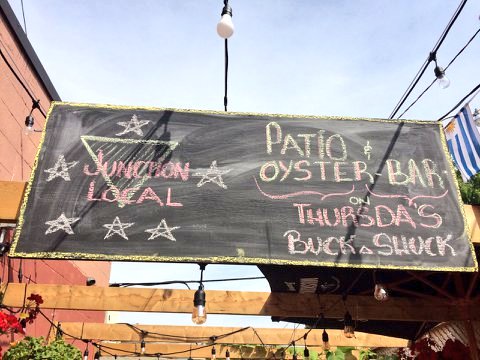 JUNCTION
LOCAL
PATIO &
OYSTER BAR
ON
THURSDA'S
BUCK A SHUCK